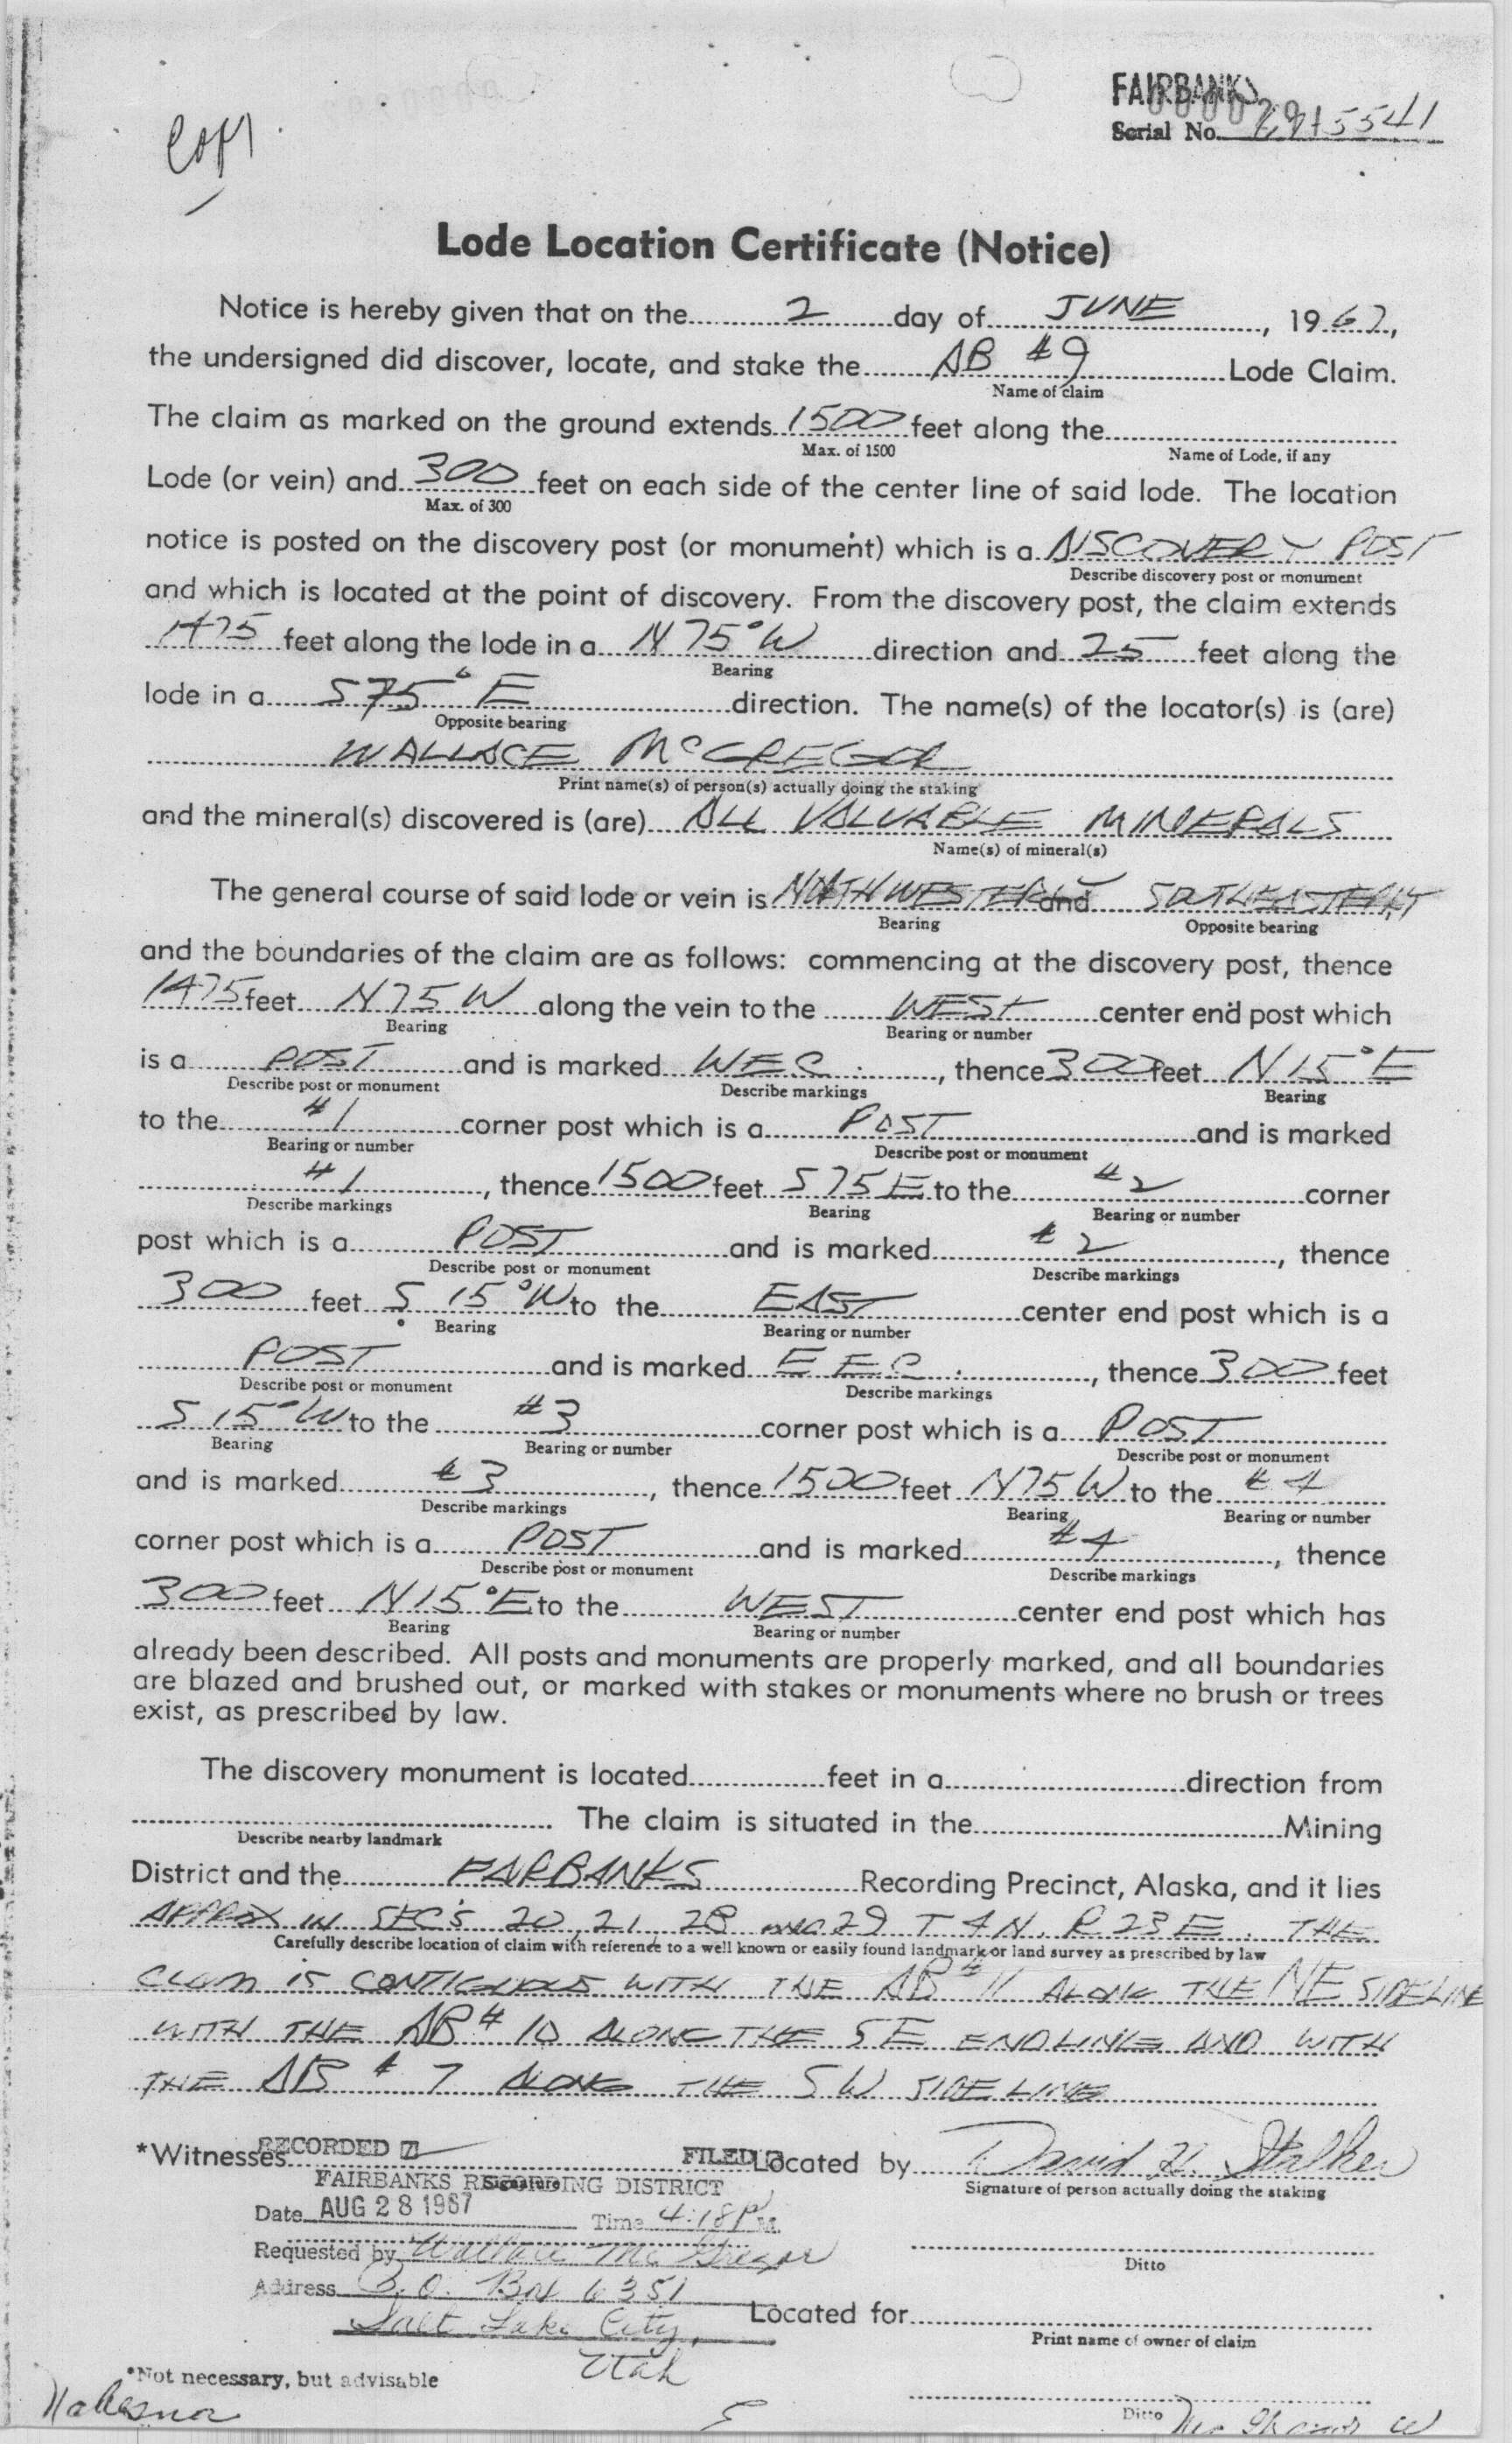 COPY
FAIRBANKS
Serial No.
Lode Location Certificate (Notice)
Notice is hereby given that on the 2 day of JUNE, 1967,
the undersigned did discover, locate, and stake the AB #9 Lode Claim.
Name of claim
The claim as marked on the ground extends 1500 feet along the
Max. of 1500 Name of Lode, if any
Lode (or vein) and 300 feet on each side of the center line of said lode. The location
Max. of 300
notice is posted on the discovery post (or monument) which is a DISCOVERY POST
Describe discovery post or monument
and which is located at the point of discovery. From the discovery post, the claim extends
1475 feet along the lode in a N 75° W direction and 25 feet along the
Bearing
lode in a S 75° E direction. The name(s) of the locator(s) is (are)
Opposite bearing
WALLACE McGREGOR
Print name(s) of person(s) actually doing the staking
and the mineral(s) discovered is (are) ALL VALUABLE MINERALS
Name(s) of mineral(s)
The general course of said lode or vein is NORTHWESTERLY and SOUTHEASTERLY
Bearing Opposite bearing
and the boundaries of the claim are as follows: commencing at the discovery post, thence
1475 feet N 75 W along the vein to the WEST center end post which
Bearing Bearing or number
is a POST and is marked WEC, thence 300 feet N 15° E
Describe post or monument Describe markings Bearing
to the #1 corner post which is a POST and is marked
Bearing or number Describe post or monument
#1, thence 1500 feet S 75 E to the #2 corner
Describe markings Bearing Bearing or number
post which is a POST and is marked #2, thence
Describe post or monument Describe markings
300 feet S 15° W to the EAST center end post which is a
Bearing Bearing or number
POST and is marked EEC, thence 300 feet
Describe post or monument Describe markings
S 15° W to the #3 corner post which is a POST
Bearing Bearing or number Describe post or monument
and is marked #3, thence 1500 feet N 75 W to the #4
Describe markings Bearing Bearing or number
corner post which is a POST and is marked #4, thence
Describe post or monument Describe markings
300 feet N 15° E to the WEST center end post which has
Bearing Bearing or number
already been described. All posts and monuments are properly marked, and all boundaries
are blazed and brushed out, or marked with stakes or monuments where no brush or trees
exist, as prescribed by law.
The discovery monument is located feet in a direction from
The claim is situated in the Mining
Describe nearby landmark
District and the FAIRBANKS Recording Precinct, Alaska, and it lies
APPROX IN SEC'S 20, 21, 28 AND 29 T 4 N. R 23 E. THE
Carefully describe location of claim with reference to a well known or easily found landmark or land survey as prescribed by law
CLAIM IS CONTIGUOUS WITH THE AB #11 ALONG THE NE SIDELINE
WITH THE AB #10 ALONG THE SE ENDLINE AND WITH
THE AB #7 ALONG THE SW SIDELINE
*Witnesses RECORDED FILED Located by David H. Stalker
Signature Signature of person actually doing the staking
FAIRBANKS RECORDING DISTRICT
Date AUG 28 1967 Time 4:18 P M.
Requested by Wallace McGregor
Ditto
Address P.O. Box 6351
Salt Lake City,
Utah
Located for
Print name of owner of claim
*Not necessary, but advisable
Nabesna
Ditto